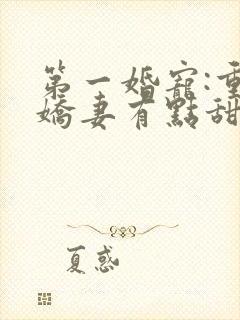 第一婚寵:重
嬌妻有點甜
夏惑